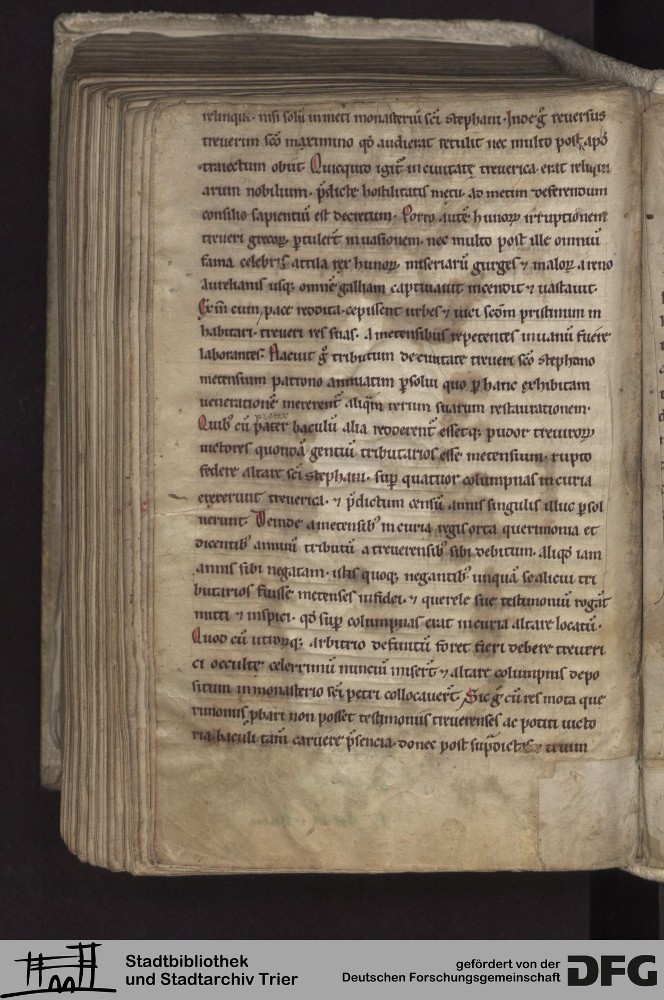 relinqit. nisi solū in meti monasteriū sc̄i stephani. Inde g̃ reuersus
treuerim sc̄o maximino qd̓ audierat retulit nec multo post apd̓
traiectum obiit. Quicquid igit̃ in ciuitatę treuerica erat reliqui
arum nobilium. p̃dictę hostilitatis metu. ad metim deferendum
consilio sapientiū est decretum. Porro autē hunoꝝ irruptionem
treueri grecoꝝ. ꝑtulert̃ inuasionem. nec multo post ille omniū
fama celebris attila rex hunoꝝ. miseriarū gurges ⁊ maloꝝ a reno
aurelianis usq; omnē galliam captiuauit incendit ⁊ uastauit.
cum pace reddita. cepissent urbes ⁊ uici scd̓m pristinum in
habitari. treueri res suas. a metensibus repetentes in uanū fuere
laborantes. Placuit g̃ tributum de ciuitate treueri sc̄o stephano
metensium patrono annuatim ꝑsolui quo ꝑ hanc exhibitam
ueneratione mererent̃ aliq̃m rerum suarum restaurationem.
Quib; cū p̃ater baculū alia redderent̃ essetq; pudor treuiroꝝ
uictores quondā gentiū tributarios esse metensium. rupto
federe altare sc̄i stephani. suꝑ quatuor columpnas in curia
erexerunt treuerica. ⁊ p̃dictum censū annis singulis illuc ꝑsol
uerunt. Deinde a metensib; in curia regis orta querimonia et
dicentib; annuū tributū a treuerensib; sibi debitum. aliqd̓ iam
annis sibi negatam. istis quoq; negantib; unquā se alicui tri
butarios fuisse metenses ⁊ querele sue testimoniū rogat̃
mitti ⁊ inspici. qd̓ suꝑ columpnas erat in curia altare locatū.
Quod cū utroꝝq; arbitrio defunitū foret fieri debere treueri
ci occulte celerrimū nunciū misert̃ ⁊ altare columpnis depo
situm in monasterio sc̄i petri collocauert̃. Sic g̃ cū res mota que
rimoniis ꝓbari non posset testimoniis treuerenses ac potiti uicto
ria. baculi tam̃ caruere p̃sencia. donec post sup̃dictas ⁊ trium
Stadtbibliothek
und Stadtarchiv Trier
gefördert von der
Deutschen Forschungsgemeinschaft
DFG